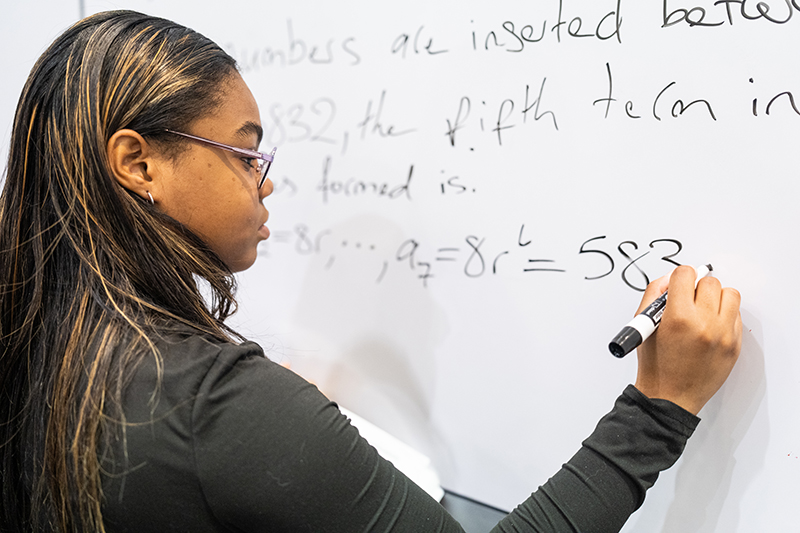 numbers are inserted between
832, the fifth term in
formed is.
= 8r, ..., a₇ = 8r⁶ = 583